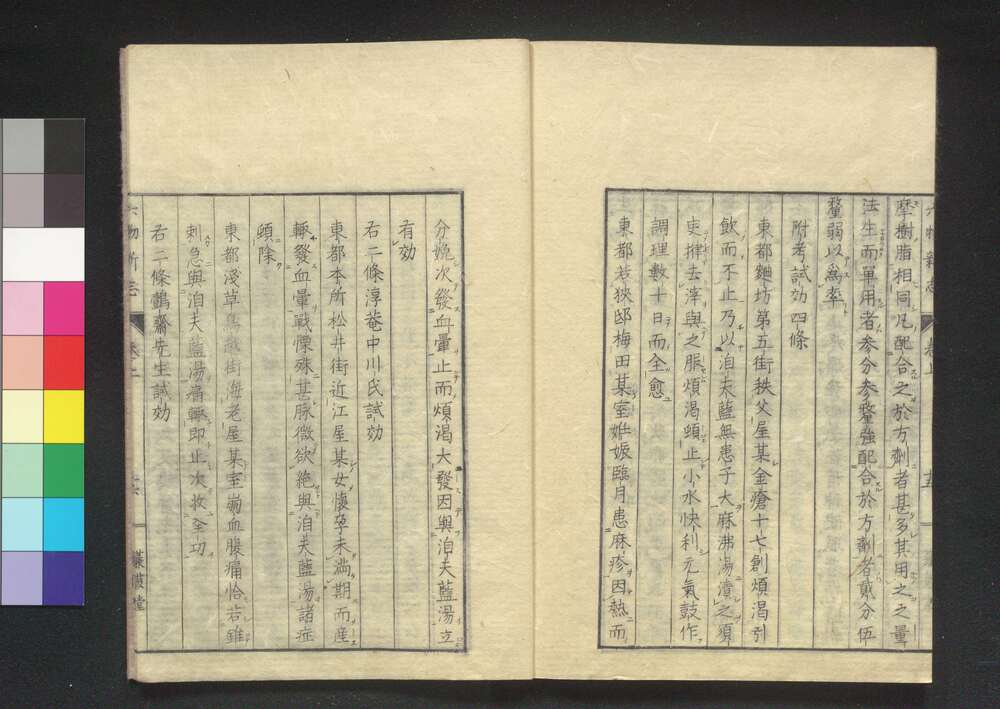 摩樹脂相同凡配合之於方劑者甚多其用之之量
法生而單用者参分参釐強配合於方劑者貳分伍
釐弱以爲率
附考試効四條
東都麴坊第五街秩父屋某金瘡十七創煩渇引
飲而不止乃以泊夫藍無患子大麻沸湯漬之須
臾攑去滓與之服煩渇頓止小水快利元氣鼓作
調理數十日而全愈
東都若狹邸梅田某室姙娠臨月患麻疹因熱而
分娩次發血暈止而煩渇大發因與泊夫藍湯立
有効
右二條淳菴中川氏試効
東都本所松井街近江屋某女懷孕未満期而産
輙發血暈戰慄殊甚脉微欲絶與泊夫藍湯諸症
頓除
東都淺草鳥越街海老屋某室崩血腹痛恰若錐
刺急與泊夫藍湯痛輙即止次救全功
右二條鷧齋先生試効
六物新志 卷上 十五
六物新志 卷上 十六